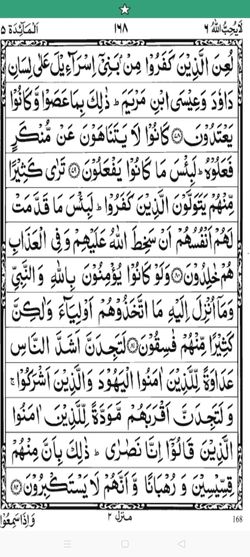 لَا يُحِبُّ اللّٰهُ ٦ ١٦٨ اَلْمَآئِدَة ٥
لُعِنَ الَّذِيْنَ كَفَرُوْا مِنْۢ بَنِيْۤ اِسْرَآءِيْلَ عَلٰى لِسَانِ
دَاوٗدَ وَعِيْسَى ابْنِ مَرْيَمَ ؕ ذٰلِكَ بِمَا عَصَوْا وَّكَانُوْا
يَعْتَدُوْنَ ۝ كَانُوْا لَا يَتَنَاهَوْنَ عَنْ مُّنْكَرٍ
فَعَلُوْهُ ؕ لَبِئْسَ مَا كَانُوْا يَفْعَلُوْنَ ۝ تَرٰى كَثِيْرًا
مِّنْهُمْ يَتَوَلَّوْنَ الَّذِيْنَ كَفَرُوْا ؕ لَبِئْسَ مَا قَدَّمَتْ
لَهُمْ اَنْفُسُهُمْ اَنْ سَخِطَ اللّٰهُ عَلَيْهِمْ وَفِي الْعَذَابِ
هُمْ خٰلِدُوْنَ ۝ وَلَوْ كَانُوْا يُؤْمِنُوْنَ بِاللّٰهِ وَالنَّبِيِّ
وَمَاۤ اُنْزِلَ اِلَيْهِ مَا اتَّخَذُوْهُمْ اَوْلِيَآءَ وَلٰكِنَّ
كَثِيْرًا مِّنْهُمْ فٰسِقُوْنَ ۝ لَتَجِدَنَّ اَشَدَّ النَّاسِ
عَدَاوَةً لِّلَّذِيْنَ اٰمَنُوا الْيَهُوْدَ وَالَّذِيْنَ اَشْرَكُوْا ۚ
وَلَتَجِدَنَّ اَقْرَبَهُمْ مَّوَدَّةً لِّلَّذِيْنَ اٰمَنُوا
الَّذِيْنَ قَالُوْۤا اِنَّا نَصٰرٰى ؕ ذٰلِكَ بِاَنَّ مِنْهُمْ
قِسِّيْسِيْنَ وَرُهْبَانًا وَّاَنَّهُمْ لَا يَسْتَكْبِرُوْنَ ۝
وَاِذَا سَمِعُوْا منزل ٢ 168